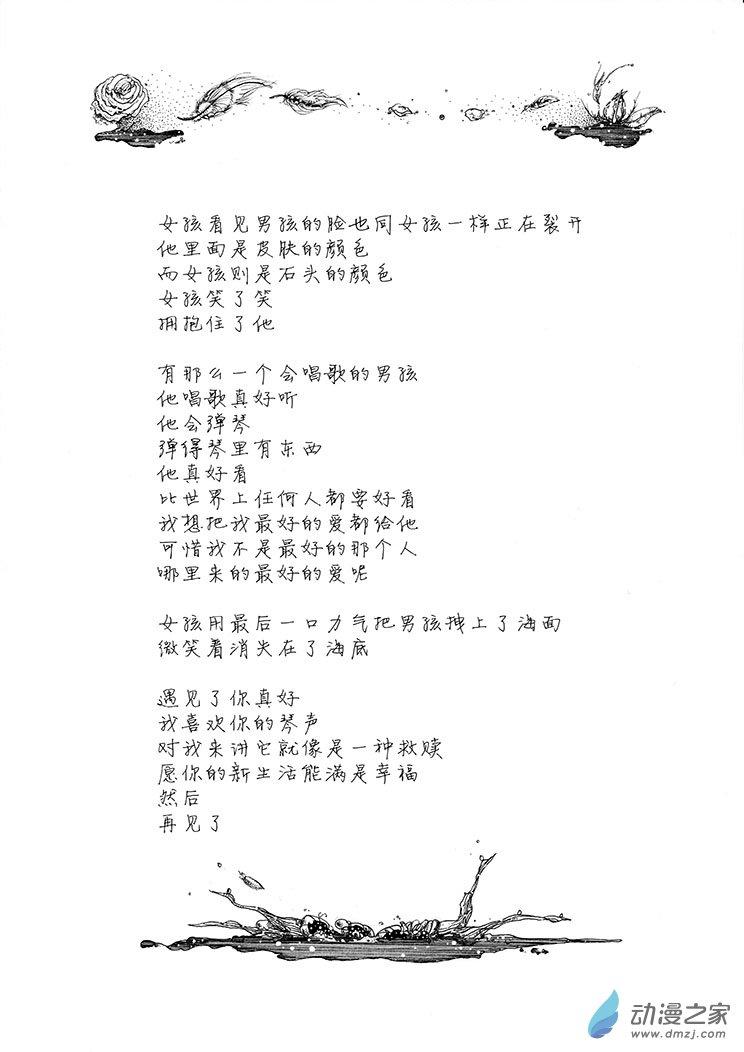 女孩看见男孩的脸也同女孩一样正在裂开
他里面是皮肤的颜色
而女孩则是石头的颜色
女孩笑了笑
拥抱住了他
有那么一个会唱歌的男孩
他唱歌真好听
他会弹琴
弹得琴里有东西
他真好看
比世界上任何人都要好看
我想把我最好的爱都给他
可惜我不是最好的那个人
哪里来的最好的爱呢
女孩用最后一口力气把男孩拽上了海面
微笑着消失在了海底
遇见了你真好
我喜欢你的琴声
对我来讲它就像是一种救赎
愿你的新生活能满是幸福
然后
再见了
动漫之家
www.dmzj.com